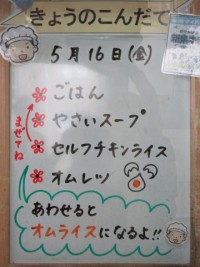 きょうのこんだて
5月16日(金)
ごはん
やさいスープ
セルフチキンライス
オムレツ
まぜてね
あわせると
オムライスになるよ!!